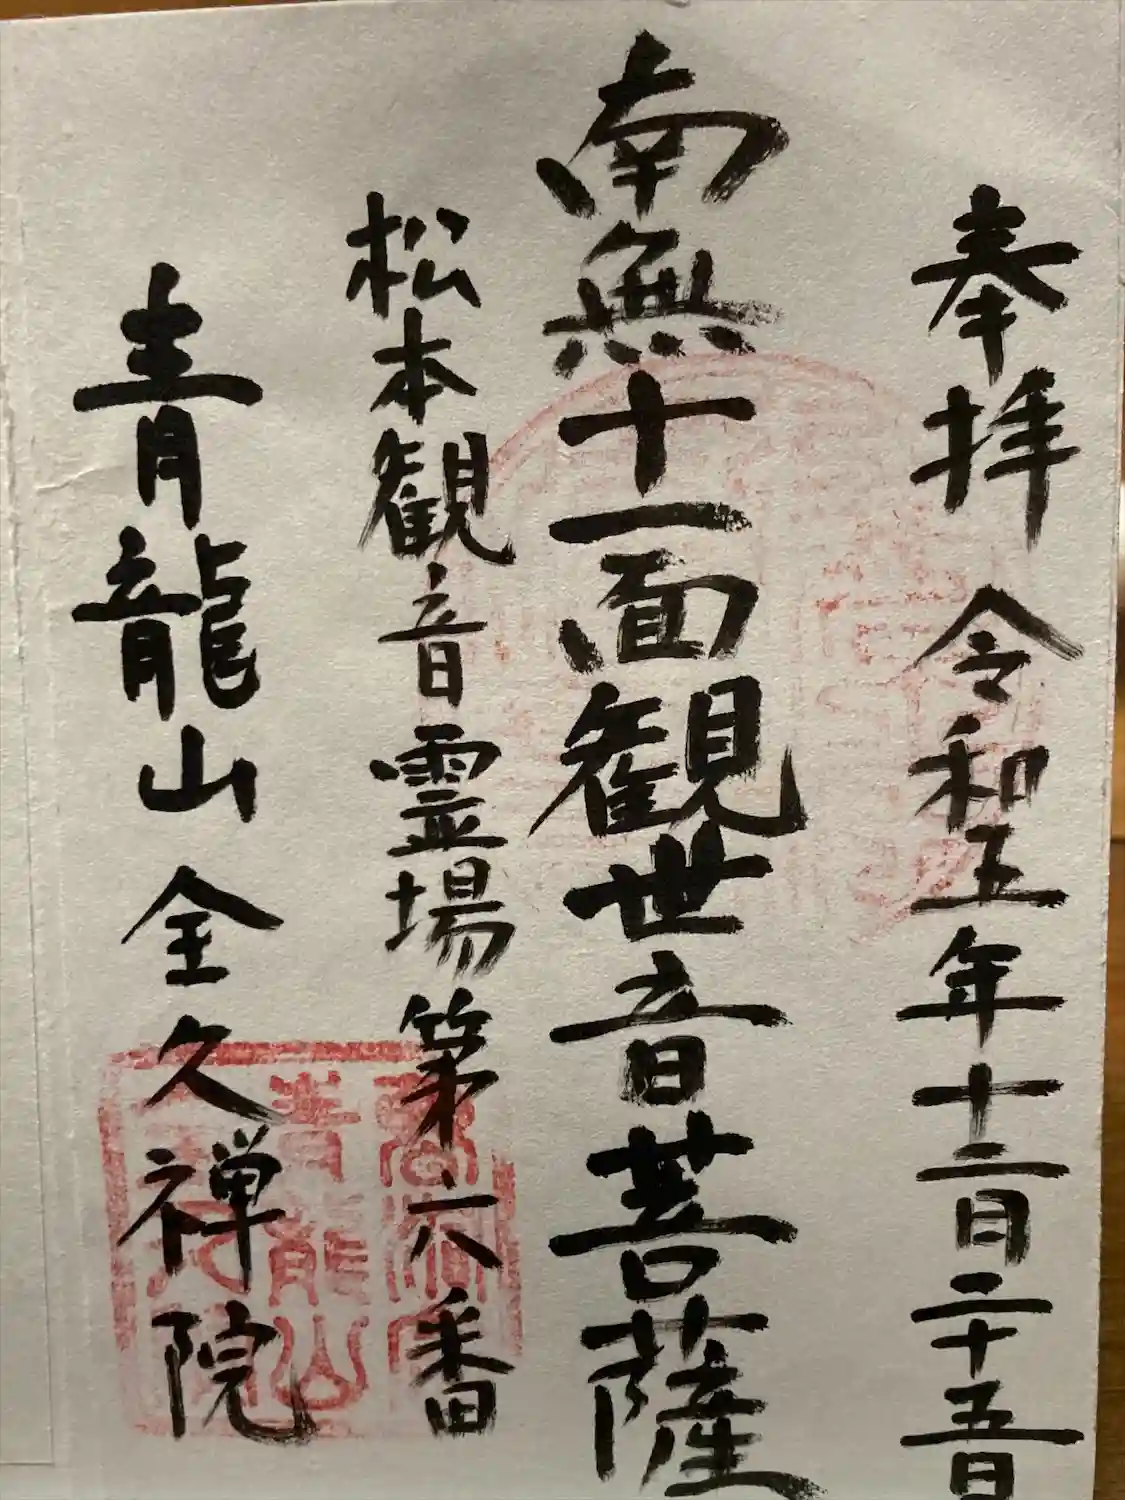 奉拝 令和五年十二月二十五日
南無十一面観世音菩薩
松本観音霊場第六番
青龍山 全久禅院
青龍山